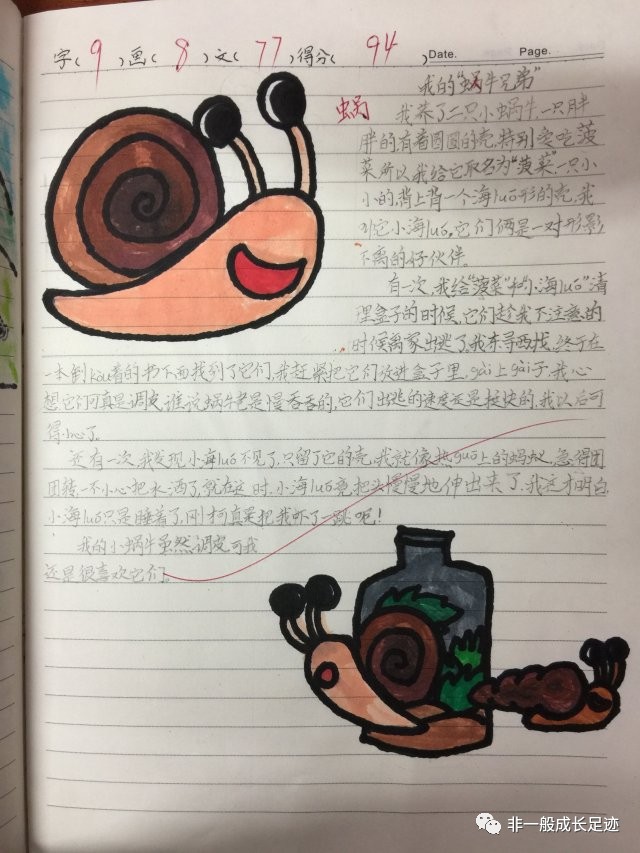 字( 9 )画( 8 )文( 77 )得分( 94 )Date. Page.
我的"蜗牛兄弟"
蜗
我养了二只小蜗牛,一只胖
胖的有着圆圆的壳,特别爱吃菠
菜所以我给它取名为"菠菜",一只小
小的背上背一个海luó形的壳,我
叫它小海luó,它们俩是一对形影
不离的好伙伴。
有一次,我给"菠菜"和"小海luó"清
理盒子的时候,它们趁我不注意的
时候离家出走了,我东寻西找,终于在
一本倒kòu着的书下面找到了它们,我赶紧把它们放进盒子里,gài上gài子,我心
想它们可真是调皮,谁说蜗牛老是慢吞吞的,它们出逃的速度还是挺快的,我以后可
得小心了。
还有一次,我发现小海luó不见了,只留了它的壳,我就像热guō上的蚂蚁,急得团
团转,一不小心把水洒了,就在这时,小海luó竟把头慢慢地伸出来了,我这才明白
小海luó只是睡着了,刚才可真是把我吓了一跳呢!
我的小蜗牛虽然调皮可我
还是很喜欢它们。
非一般成长足迹